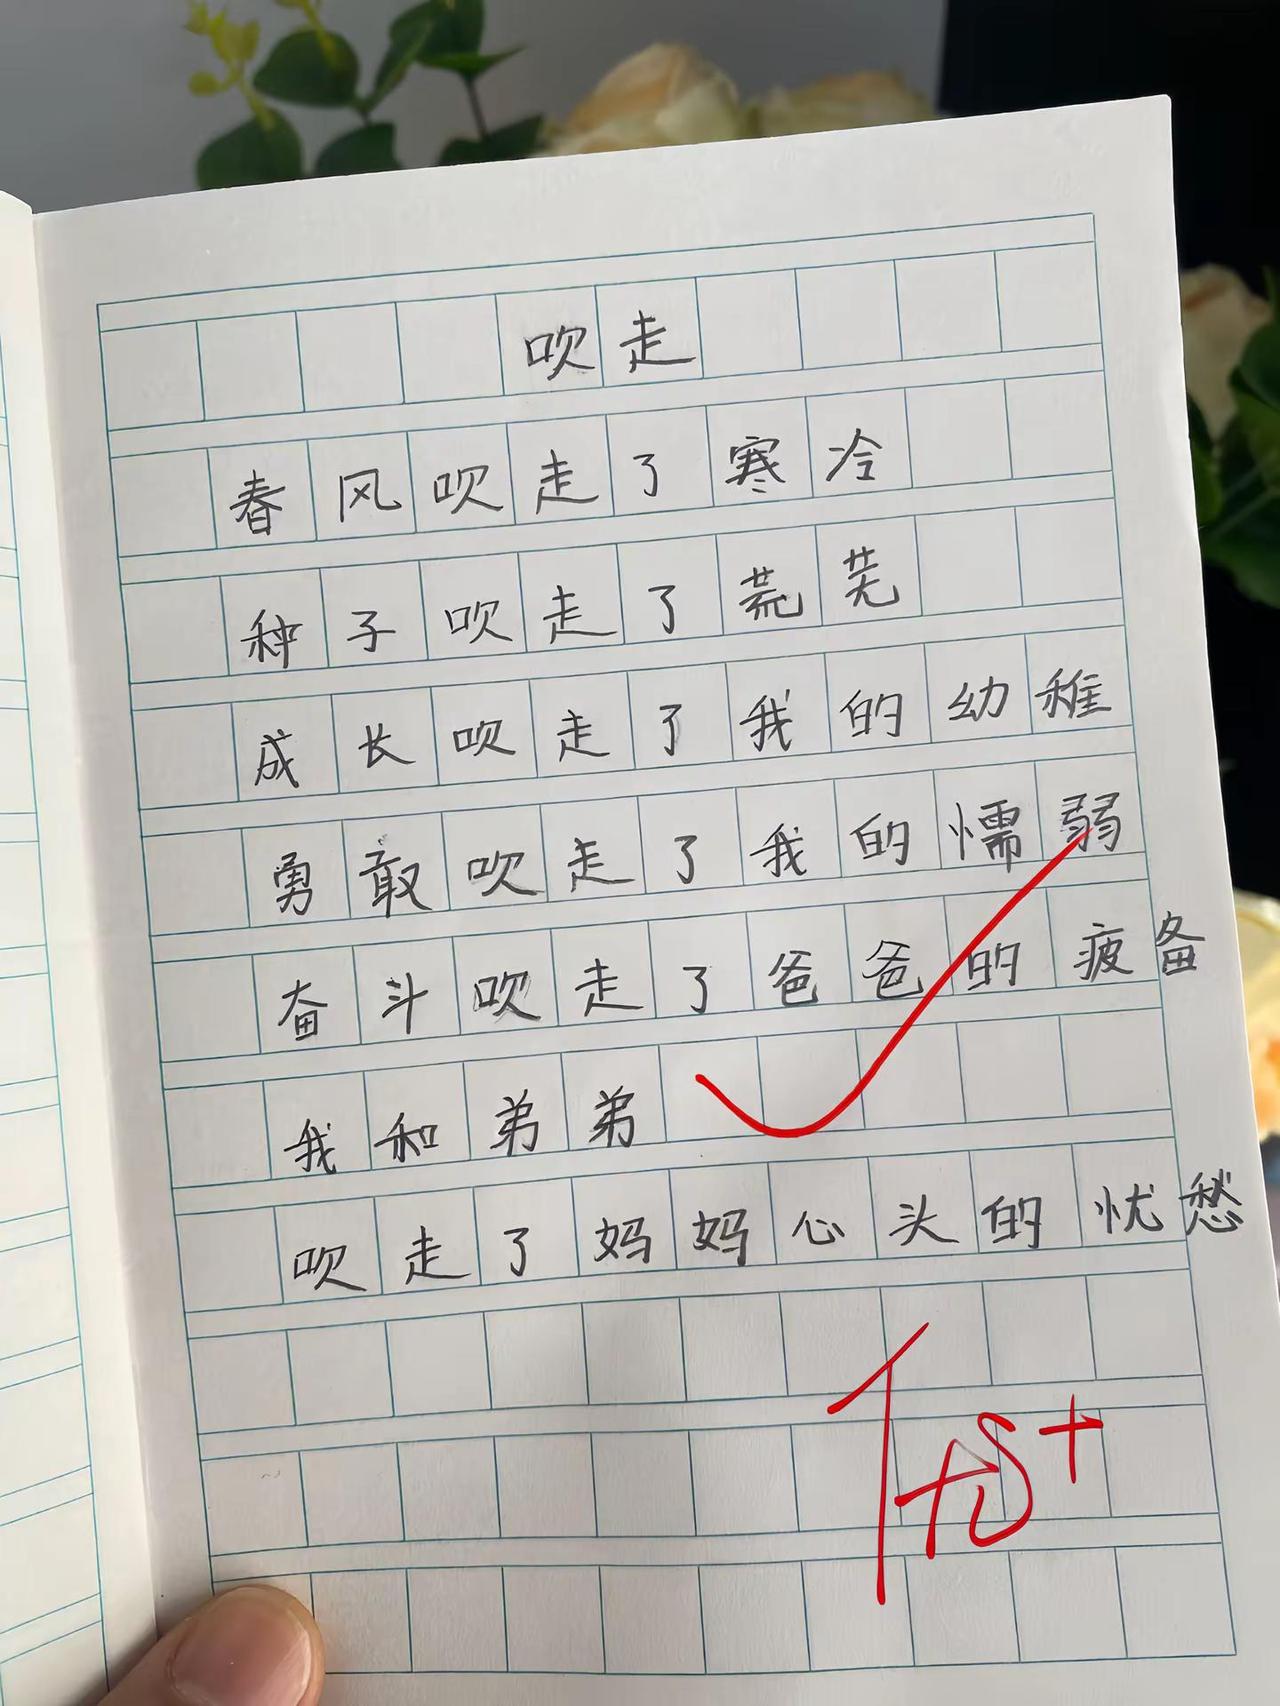 吹走
春风吹走了寒冷
种子吹走了荒芜
成长吹走了我的幼稚
勇敢吹走了我的懦弱
奋斗吹走了爸爸的疲备
我和弟弟
吹走了妈妈心头的忧愁
优+